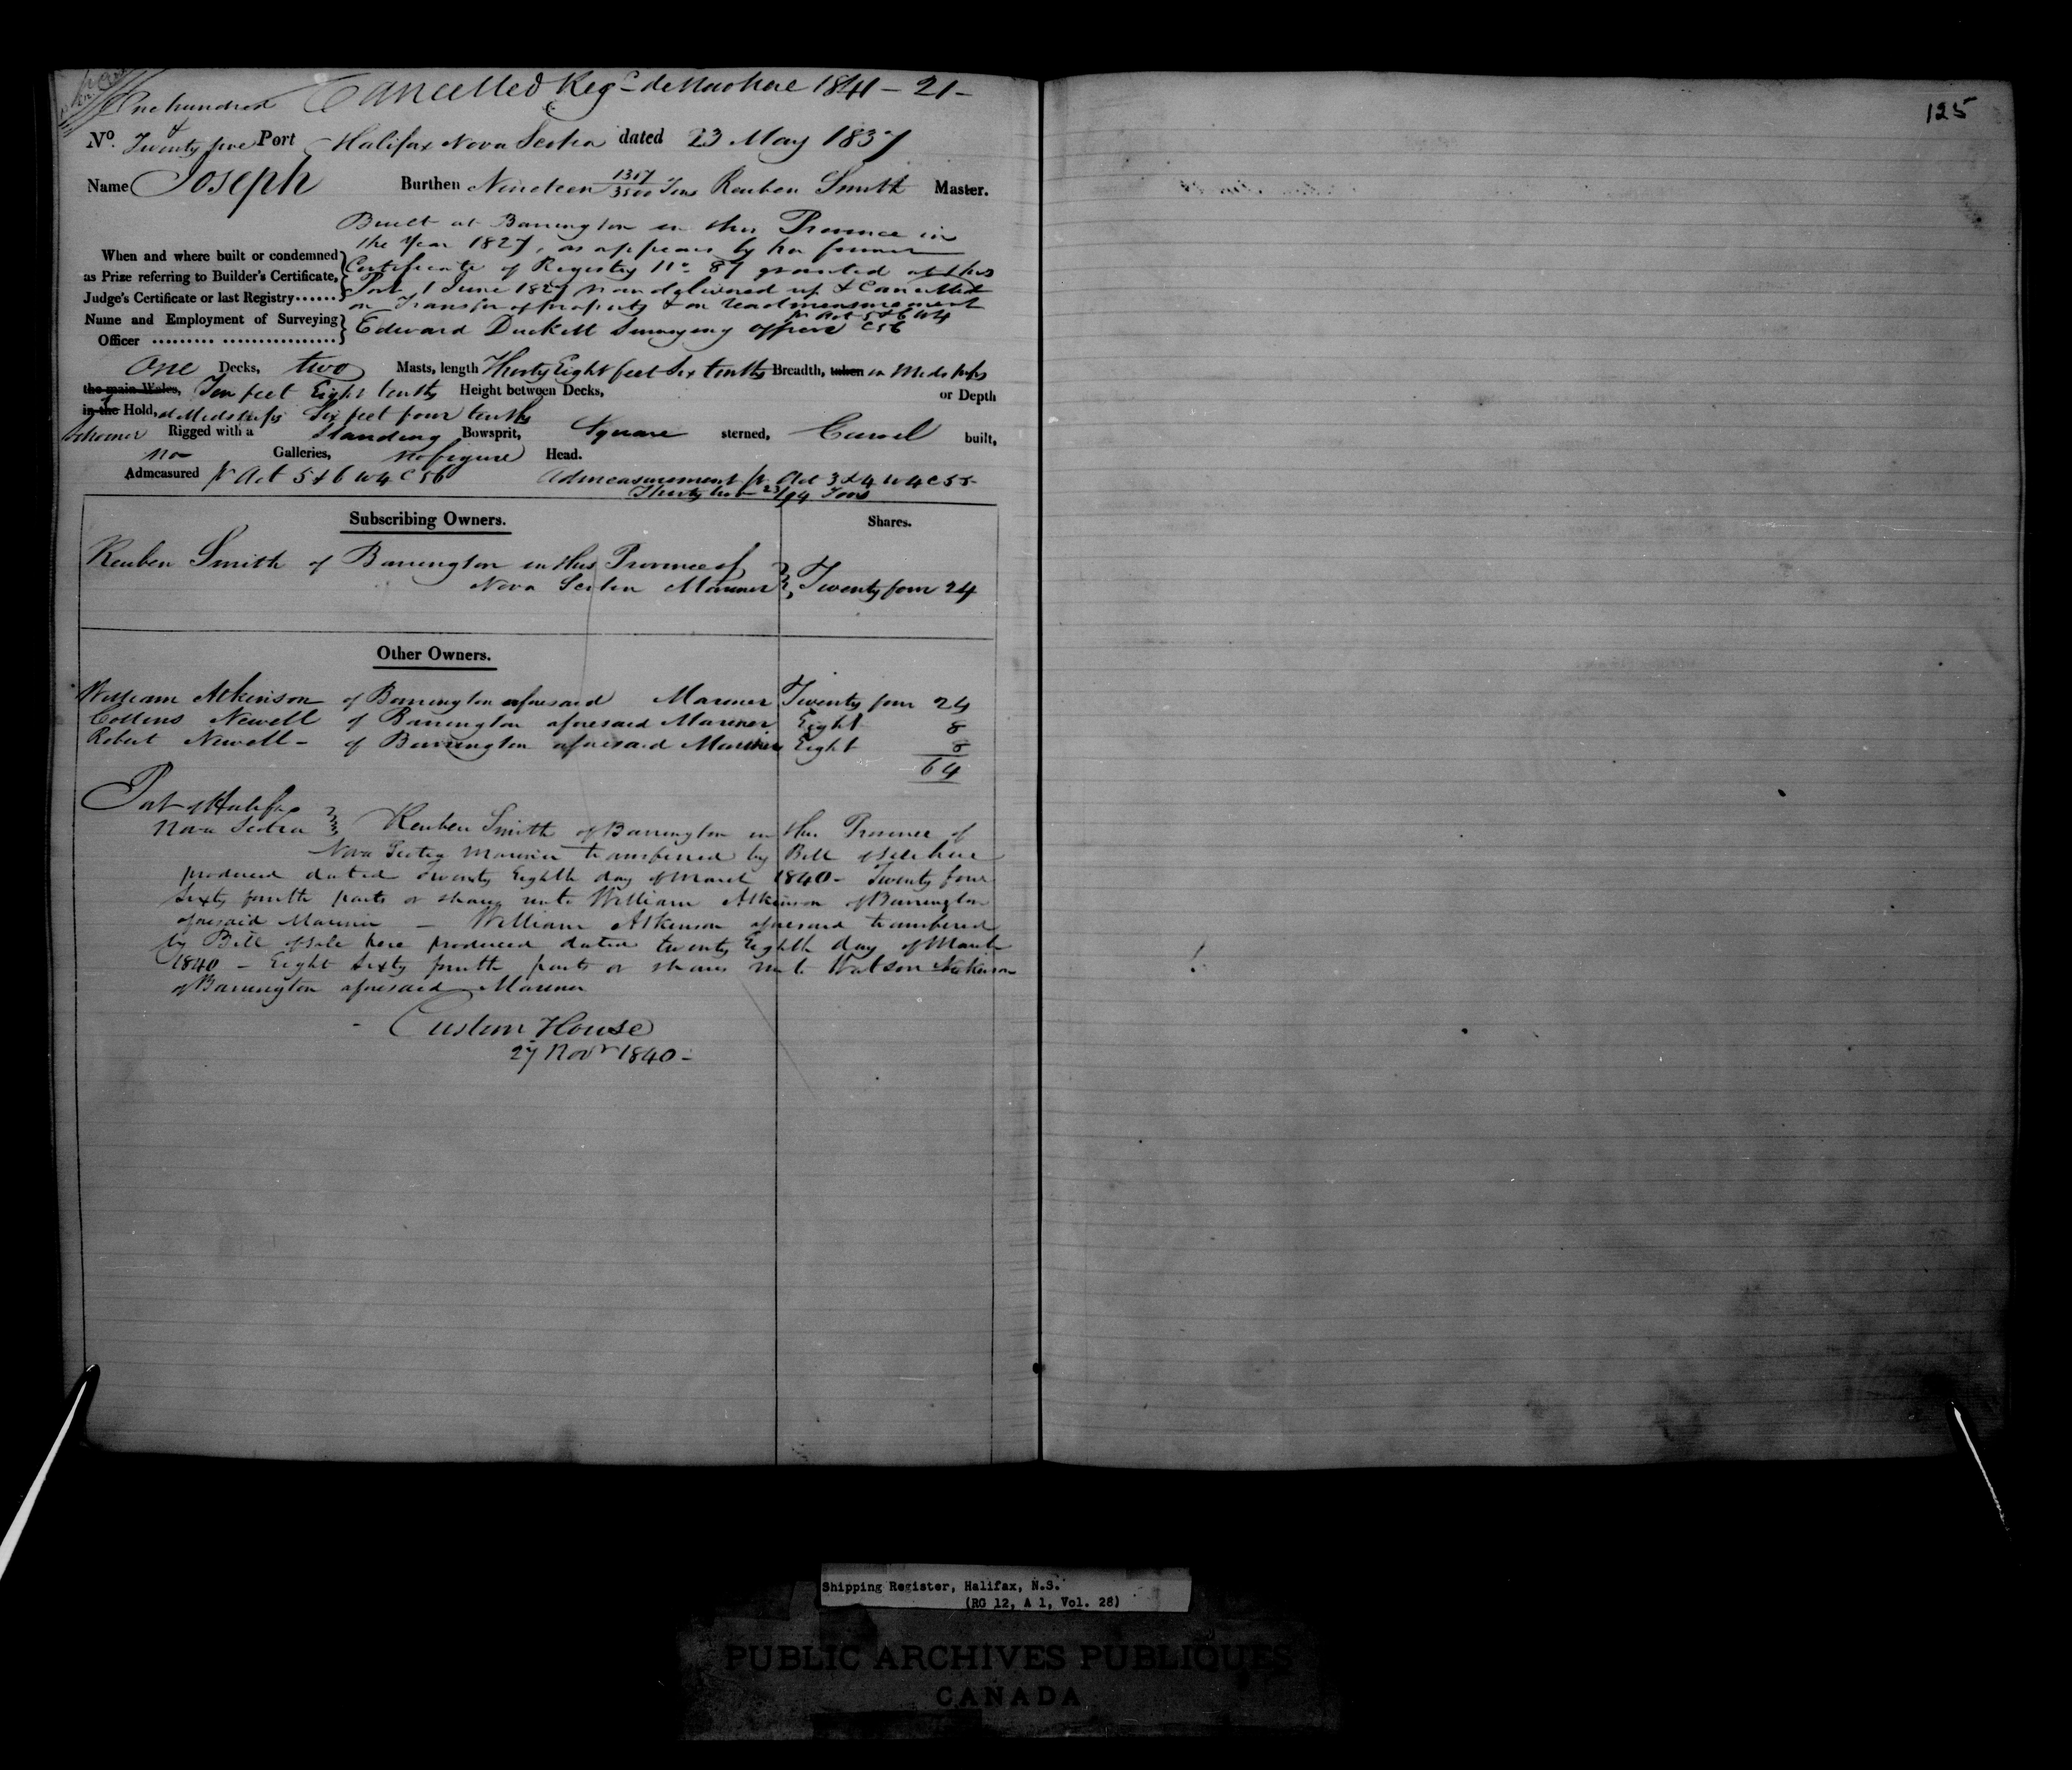 Cancelled Reg<sup>d</sup> de Novo here 1841 - 21 -
One hundred
&
No. Twenty five Port Halifax Nova Scotia dated 23 May 1837
Name Joseph Burthen Nineteen 1317/3500 Tons Reuben Smith Master.
Built at Barrington in this Province in
the Year 1827, as appears by her former
When and where built or condemned
as Prize referring to Builder's Certificate,
Judge's Certificate or last Registry
Certificate of Registry No. 87 granted at this
Port 1 June 1827 now delivered up & Cancelled
on Transfer of property & on readmeasurement
pr Act 5 & 6 W 4
C 56
Name and Employment of Surveying
Officer
Edward Duckett Surveying officer
One Decks, two Masts, length Thirty Eight feet Six tenths Breadth, taken in Midships
the main Wales, Ten feet Eight tenths Height between Decks, or Depth
in the Hold, at Midships Six feet four tenths
Schooner Rigged with a Standing Bowsprit, Square sterned, Carvel built,
no Galleries, no figure Head.
Admeasured pr Act 5 & 6 W 4 C 56 Admeasurement pr Act 3 & 4 W 4 C 55
Thirty two 23/94 Tons
Subscribing Owners. Shares.
Reuben Smith of Barrington in this Province of
Nova Scotia Mariner Twenty four 24
Other Owners.
William Atkinson of Barrington aforesaid Mariner Twenty four 24
Collins Newell of Barrington aforesaid Mariner Eight 8
Robert Newell - of Barrington aforesaid Mariner Eight 8
64
Port of Halifax
Nova Scotia Reuben Smith of Barrington in the Province of
Nova Scotia Mariner transferred by Bill of Sale here
produced dated Twenty Eighth day of March 1840 - Twenty four
Sixty fourth parts or shares unto William Atkinson of Barrington
aforesaid Mariner - William Atkinson aforesaid transferred
by Bill of Sale here produced dated twenty Eighth day of March
1840 - Eight Sixty fourth parts or shares unto Watson Nickerson
of Barrington aforesaid Mariner
Custom House
27 Novr 1840 -
125
Shipping Register, Halifax, N.S.
(RG 12, A 1, Vol. 28)
PUBLIC ARCHIVES PUBLIQUES
CANADA